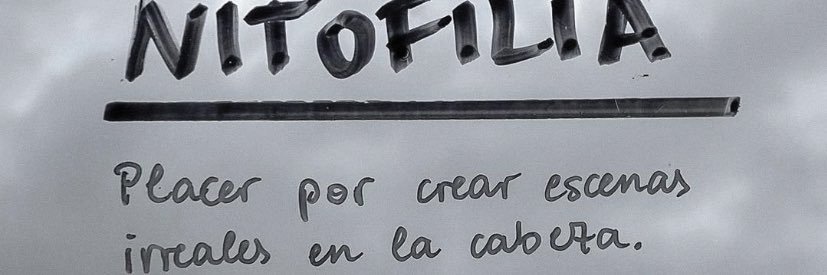 NITOFILIA
Placer por crear escenas
irreales en la cabeza.